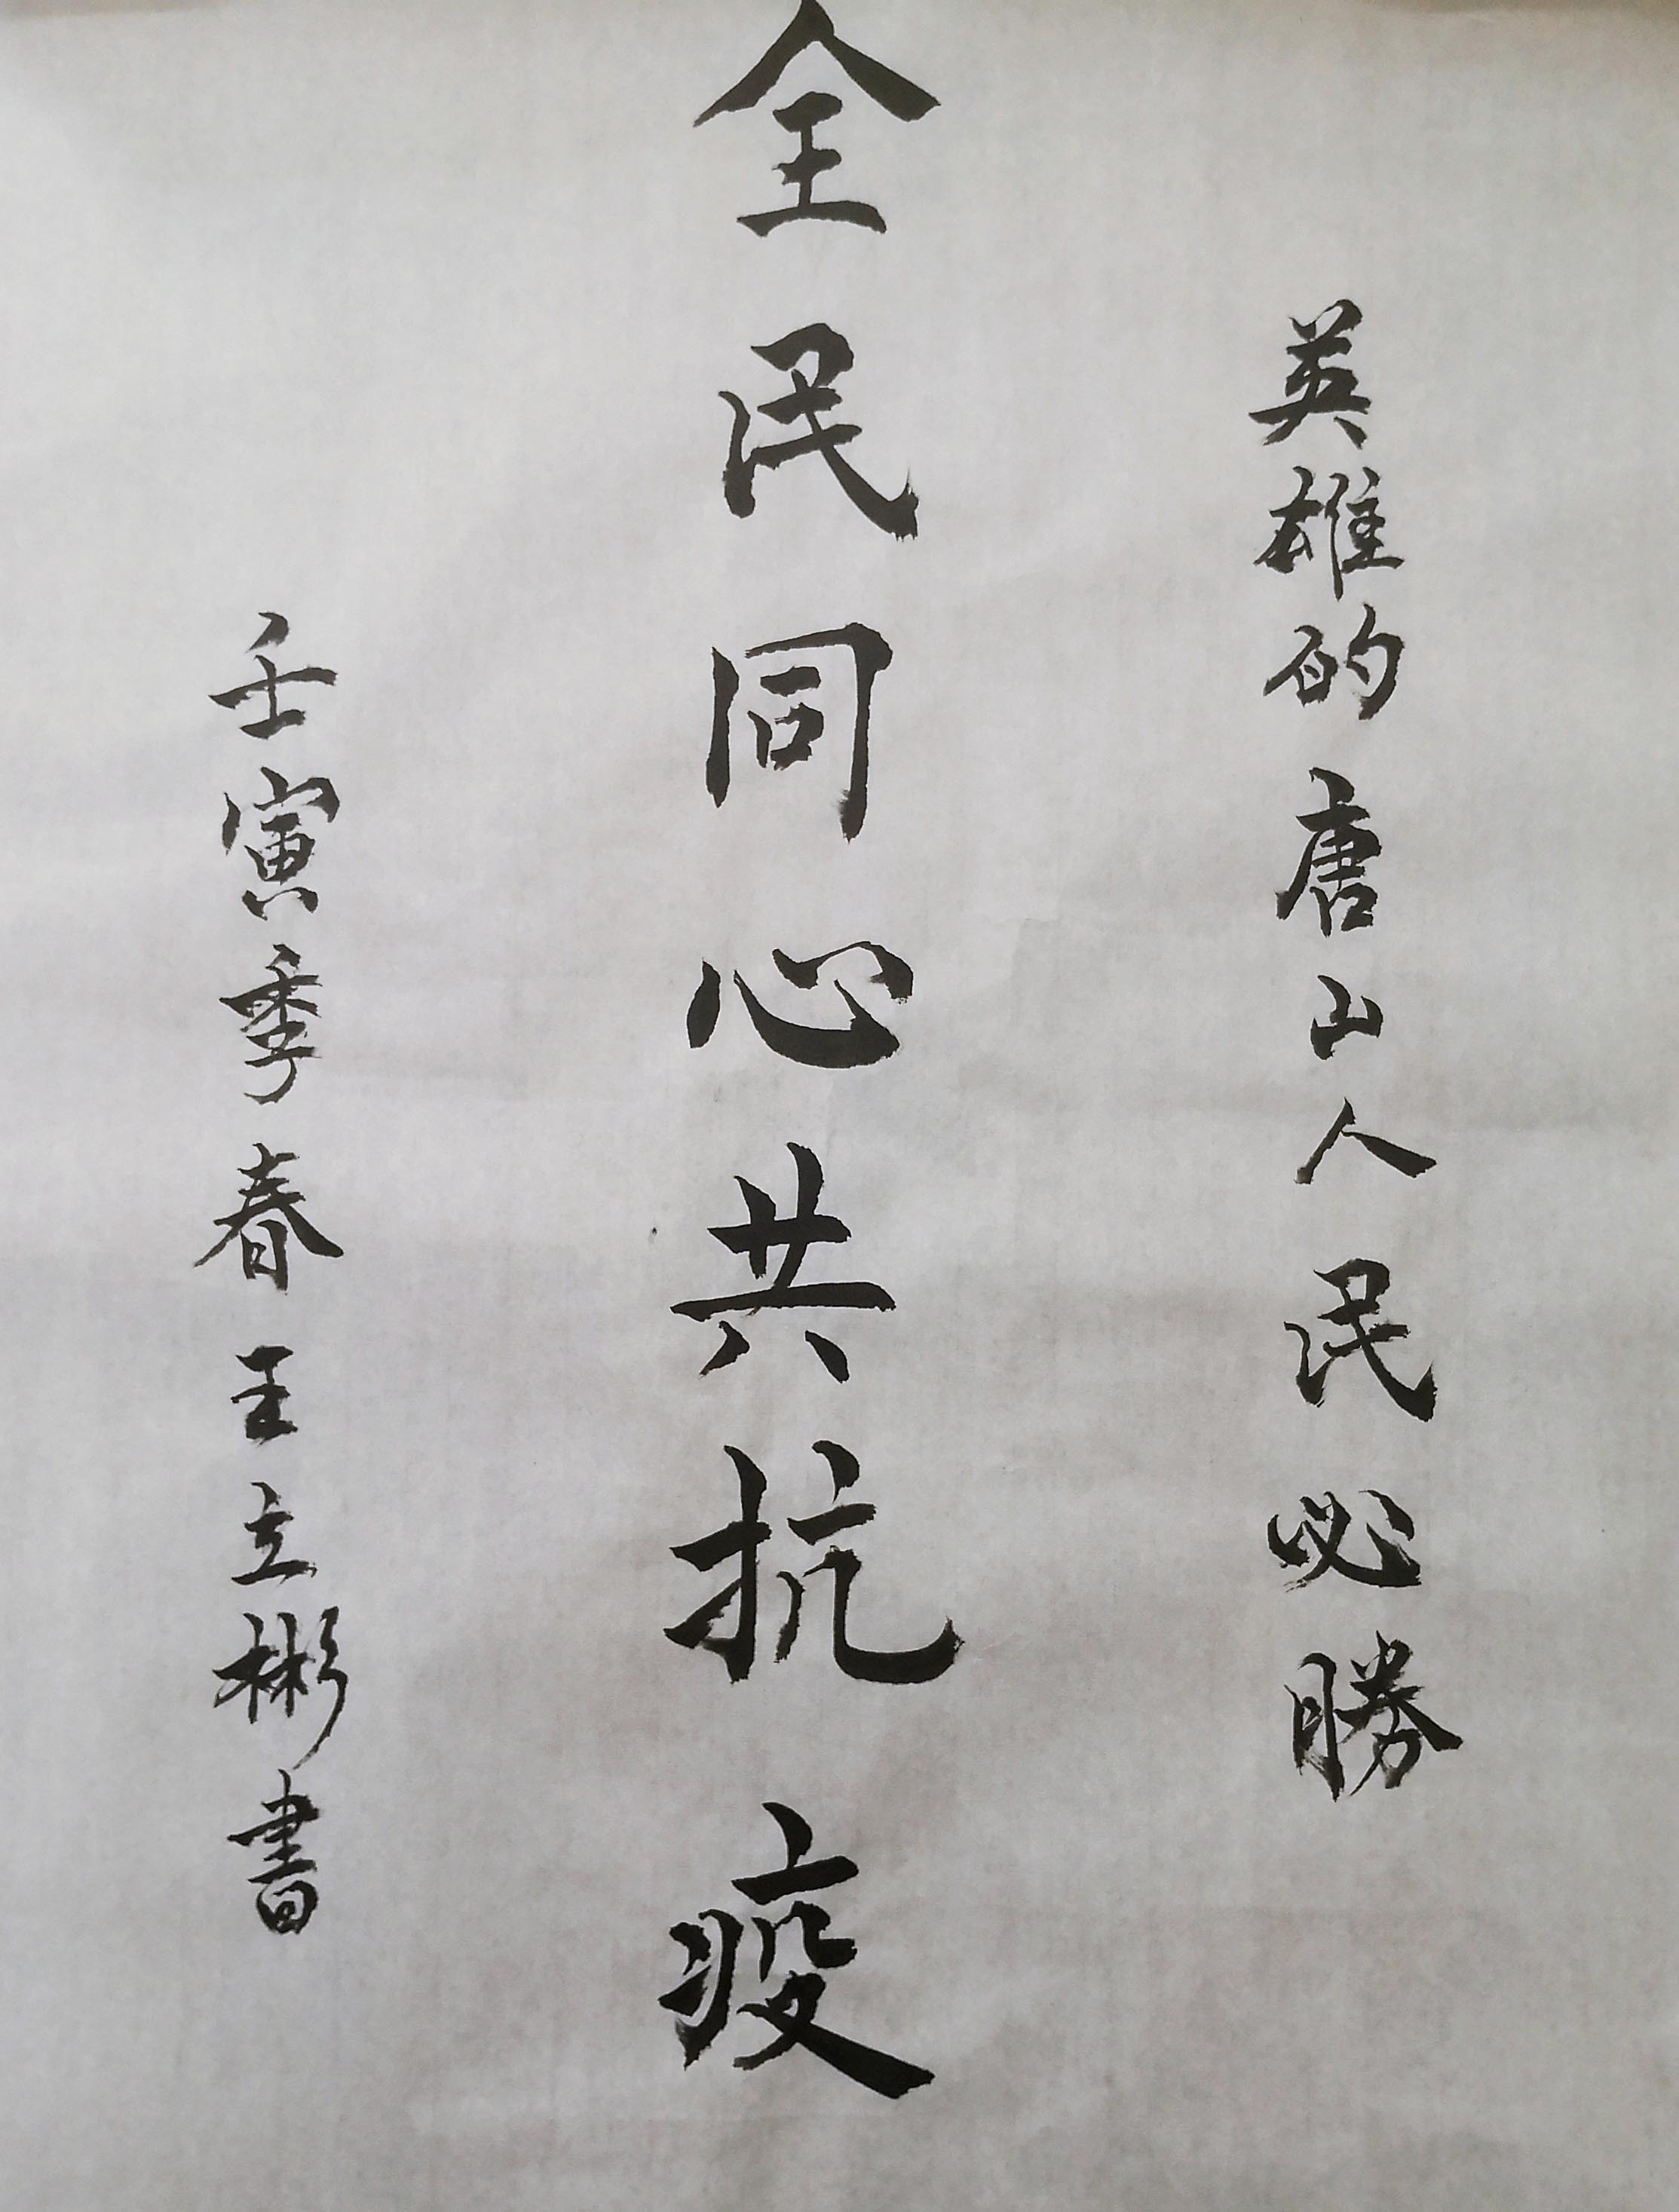 英雄的唐山人民必勝
全民同心共抗疫
壬寅季春王立彬書